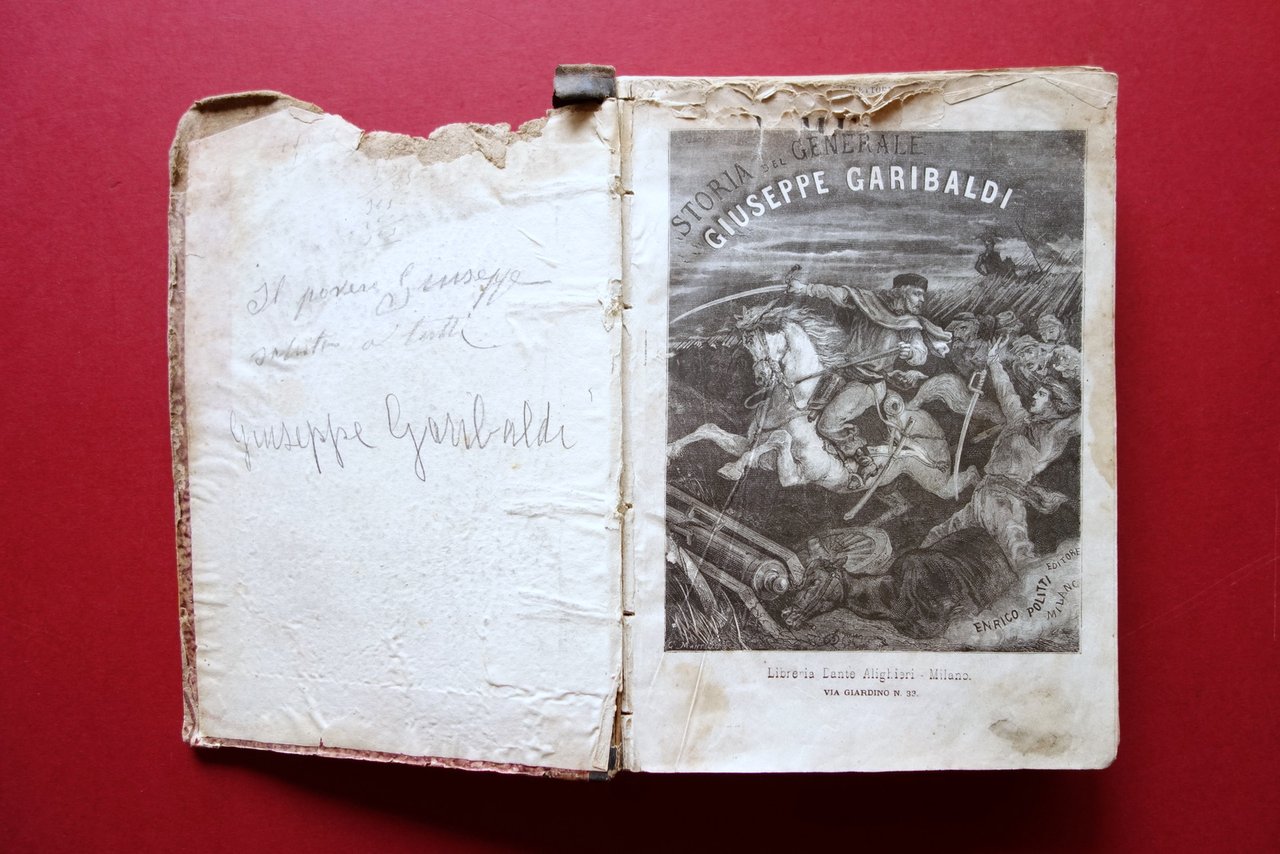 Il povero Giuseppe
saluta a tutti
Giuseppe Garibaldi
STORIA DEL GENERALE
GIUSEPPE GARIBALDI
ENRICO POLITTI EDITORE
MILANO
Libreria Dante Alighieri - Milano.
VIA GIARDINO N. 33.